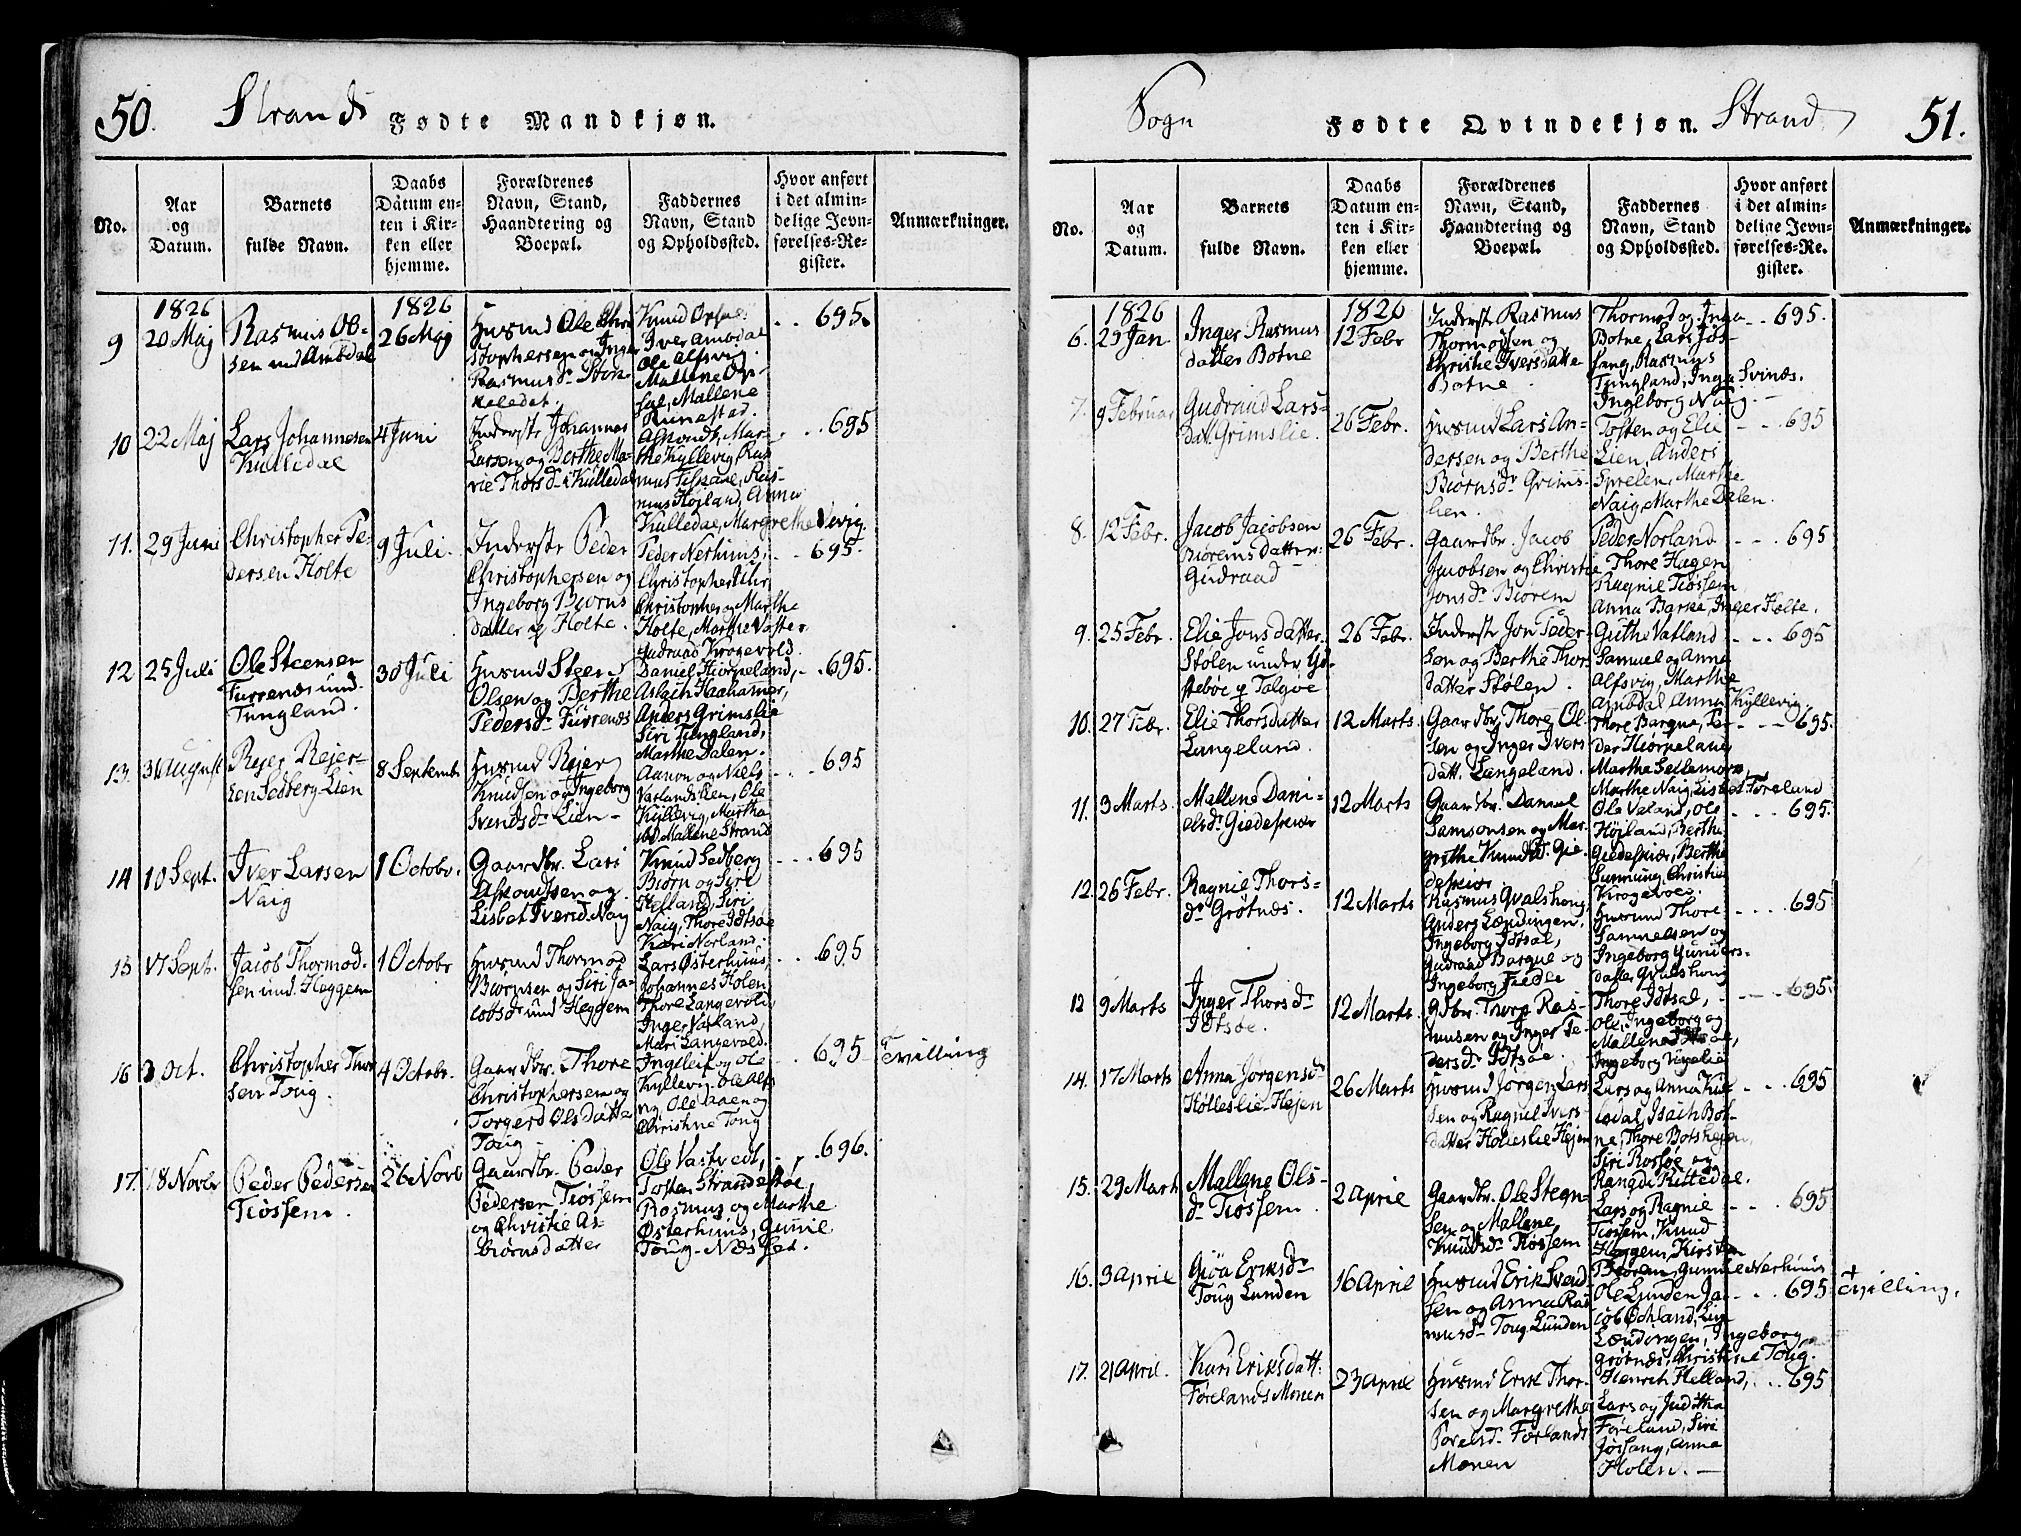 50.
Strands
Fødte Mandkjøn.
No.
Aar
og
Datum.
Barnets
fulde Navn.
Daabs
Datum en-
ten i Kir-
ken eller
hjemme.
Forældrenes
Navn, Stand,
Haandtering og
Boepæl.
Faddernes
Navn, Stand
og Opholdssted.
Hvor anført
i det almin-
delige Jevn-
førelses-Re-
gister.
Anmærkninger.
1826
1826
9
20 Maj
Rasmus Ol-
sen und Ambdal
26 Maj
Husmd Ole Chri
stophersen og Inger
Rasmusdr
Knud Opsal
Iver Ambdal
Ole Alfsvig.
Mallene Op-
sal, Mallene
695.
10
22 Maj
Lars Johannesen
Kulledal
4 Juni
Inderste Johannes
Larsen og Berthe Ma-
rie Thorsdr i Kulledal
Asmonds, Mar-
the Kyllevig, Ras
mus Fiskaae, Ras-
mus Højland, Anna
Kulledal, Margrethe
695
11.
29 Juni
Christopher Pe-
dersen Holte
9 Juli.
Inderste Peder
Christophersen og
Ingeborg Biørns
datter af Holte.
Peder Nerhuus,
Christopher
Christopher og Marthe
Holte, Marthe
Gudraad Krogevold.
695.
12
25 Juli
Ole Steensen
Furrenæs und.
Tungland.
30 Juli
Husmd Steen
Olsen og Berthe
Pedersdr Furrenæs
Daniel Hiorpeland,
Aslach Haahamar,
Anders Grimslie
Siri Tungland,
Marthe Dalen.
695.
13.
31 August
Rejer Rejer-
sen Sedberg Lien
8 Septembr
Husmd Rejer
Knudsen og Ingeborg
Svendsdr Lien
Aanon og Niels
Vatlandslien, Ole
Kyllevig, Martha
og Mallene Strand
695
14
10 Sept.
Iver Larsen
Naig
1 Octobr.
Gaardbr. Lars
Asmondsen og
Lisbet Iversd. Naig
Knud Sedberg
Biørn og Siri
Helland, Siri
Naig, Thore Idtsøe
Kari Norland.
695
15
17 Sept.
Jacob Thormod-
sen und. Heggem
1 Octobr
Husmd Thormod
Biørnsen og Siri Ja-
cobsdr und Heggem
Lars Østerhuus,
Johannes Holen
Thore Langevold,
Inger Vatland
Mari Langevold.
695
16
3 Oct.
Christopher Thor
sen Toug.
4 Octobr.
Gaardbr. Thore
Christophersen og
Torgerd Olsdatter
Toug
Ingleif og Ole
Kyllevig, Ole Alfs
vig, Ole Aaen og
Christine Toug
695
Tvilling
17.
18 Novbr
Peder Pedersen
Tiøssem.
26 Novb
Gaardbr. Peder
Pedersen Tiøssem
og Christie As-
biørnsdatter
Ole Vastvedt,
Tosten Strandestøe,
Rasmus og Marthe
Østerhuus, Gunnil
Toug - Næsset.
696.
Sogn
Fødte Qvindekjøn.
Strand
51.
No.
Aar
og
Datum.
Barnets
fulde Navn.
Daabs
Datum en-
ten i Kir-
ken eller
hjemme.
Forældrenes
Navn, Stand,
Haandtering og
Boepæl.
Faddernes
Navn, Stand
og Opholdssted.
Hvor anført
i det almin-
delige Jevn-
førelses-Re-
gister.
Anmærkninger.
1826
1826
6.
29 Jan
Inger Rasmus
datter Botne
12 Febr
Inderste Rasmus
Thormodsen og
Christie Iversdatte
Botne
Thormod og Inga
Botne, Lars Jøs-
sang, Rasmus
Tungland, Inga Svinæs.
Ingeborg Naig.
695.
7.
9 Februar
Gudraad Lars-
dat. Grimslie.
26 Febr.
Husmd Lars An-
dersen og Berthe
Biørnsdr Grims-
lien.
Tosten og Elie
Lien, Anders
Marthe
Naig, Marthe Dalen.
695
8.
12 Febr.
Jacob Jacobsen
Biørems datter
Gudraad
26 Febr.
Gaardbr. Jacob
Jacobsen og Christie
Jonsdr Biørem
Peder Norland
Thore Hagen
Ragnil Tiøssem
Anna Barke, Inger Holte.
695
9.
25 Febr.
Elie Jonsdatter
Stølen under
26 Febr.
Inderste Jon Peder-
sen og Berthe Thors
datter Stølen.
Guthe Vatland
Samuel og Anna
Alfsvig, Marthe
Ambdal Anna Kyllevig.
695
10.
27 Febr.
Elie Thorsdatter
Langeland.
12 Marts
Gaardbr. Thore Ol-
sen og Inger Ivers
datt. Langeland.
Thore Barque, Pe-
der Hiørpeland
Marthe
Marthe Naig, Lisbet Føreland
695.
11.
3 Marts.
Mallene Dani-
elsdr Giedeskiær
12 Marts
Gaardbr. Daniel
Samsonsen og Mar-
grethe Knudsd. Gie-
deskiær
Ole Veland, Ole
Højland, Berthe
Giedeskiær, Berthe
Christie
Krogevold.
695.
12.
26 Febr.
Ragnil Thors-
dr Grøtnæs.
12 Marts
Rasmus Qvalshoug
Anders Lændingen,
Ingeborg Idtsal,
Gudraad Barque og
Ingeborg
Husmd Thore
Samuelsen og
Ingeborg Gunders-
datter Qvalshoug
695
12
9 Marts
Inger Thorsdr
Idtsøe.
12 Marts.
Gdbr. Thore Ras-
musen og Inger Pe-
dersdr Idtsøe.
Thore Idtsal,
Ole, Ingeborg og
Mallene Idtsøe,
Ingeborg
695.
14.
17 Marts
Anna Jørgensdr
Hølleslie-Hejen
26 Marts
Husmd Jørgen Lars
sen og Ragnil Ivers-
datter Holleslie Hejen
Lars og Anna Kul-
ledal, Isach Bot-
ne, Thore Botshejen,
Siri Rossøe og
Rangdi Rittedal.
695
15.
29 Mart
Mallene Ols-
dr Tiøssem
2 April
Gaardbr. Ole Stegn-
sen og Mallene
Knudsdr Tiøssem
Lars og Ragnil
Tiøssem, Knud
Heggem, Kirsten
Biørem, Gunnil Nerhuus
695
16.
3 April
Giøa Eriksdr
Toug Lunden
16 April
Husmd Erik Svend-
sen og Anna Ras
musdr Toug Lunden
Ole Lunden Ja-
cob
Lændingen, Ingeborg
Grøtnæs, Christine Toug.
695
Tvilling.
17.
21 April.
Kari Eriksdatt.
Førelands Monen
23 April
Husmd Erik Thor-
sen og Margrethe
Povelsdr Førlands
Monen
Henrich Helland,
Lars og Juditha
Føreland, Siri
Jøssang, Anna
Holen.
695